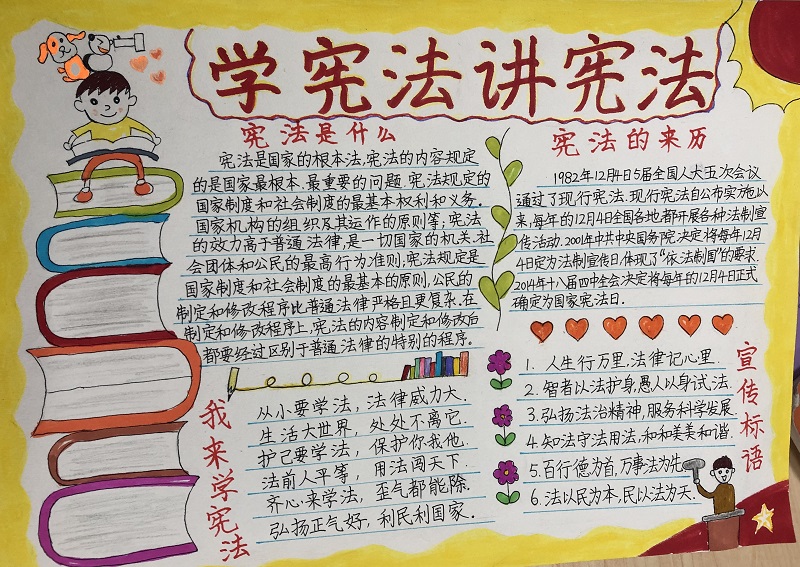 学宪法讲宪法
宪法是什么
宪法是国家的根本法,宪法的内容规定
的是国家最根本.最重要的问题.宪法规定的
国家制度和社会制度的最基本权利和义务.
国家机构的组织及其运作的原则等;宪法
的效力高于普通法律,是一切国家的机关.社
会团体和公民的最高行为准则;宪法规定是
国家制度和社会制度的最基本的原则,公民的
制定和修改程序比普通法律严格且更复杂.在
制定和修改程序上,宪法的内容制定和修改后
都要经过区别于普通法律的特别的程序.
宪法的来历
1982年12月4日5届全国人大五次会议
通过了现行宪法.现行宪法自公布实施以
来,每年的12月4日全国各地都开展各种法制宣
传活动.2001年中共中央国务院决定将每年12月
4日定为法制宣传日,体现了“依法制国”的要求.
2014年十八届四中全会决定将每年的12月4日正式
确定为国家宪法日.
我来学宪法
从小要学法，法律威力大.
生活大世界，处处不离它.
护己要学法，保护你我他.
法前人平等，用法闯天下.
齐心来学法，歪气都能除.
弘扬正气好，利民利国家.
宣传标语
1.人生行万里,法律记心里.
2.智者以法护身,愚人以身试法.
3.弘扬法治精神,服务科学发展.
4.知法守法用法,和和美美和谐.
5.百行德为首,万事法为先.
6.法以民为本,民以法为天.